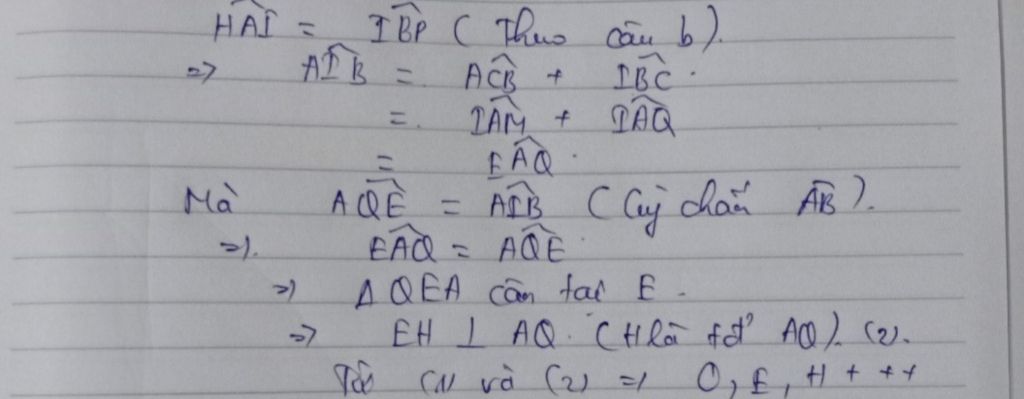 HAI^ = IBP^ (Theo câu b).
=> AIB^ = ACB^ + IBC^.
= IAM^ + IAQ^
= EAQ^.
Mà AQE^ = AIB^ (Cùng chắn AB^).
=> EAQ^ = AQE^.
=> Δ QEA cân tại E.
=> EH ⊥ AQ. (H là tđ AQ). (2).
Từ (1) và (2) => O, E, H + ++